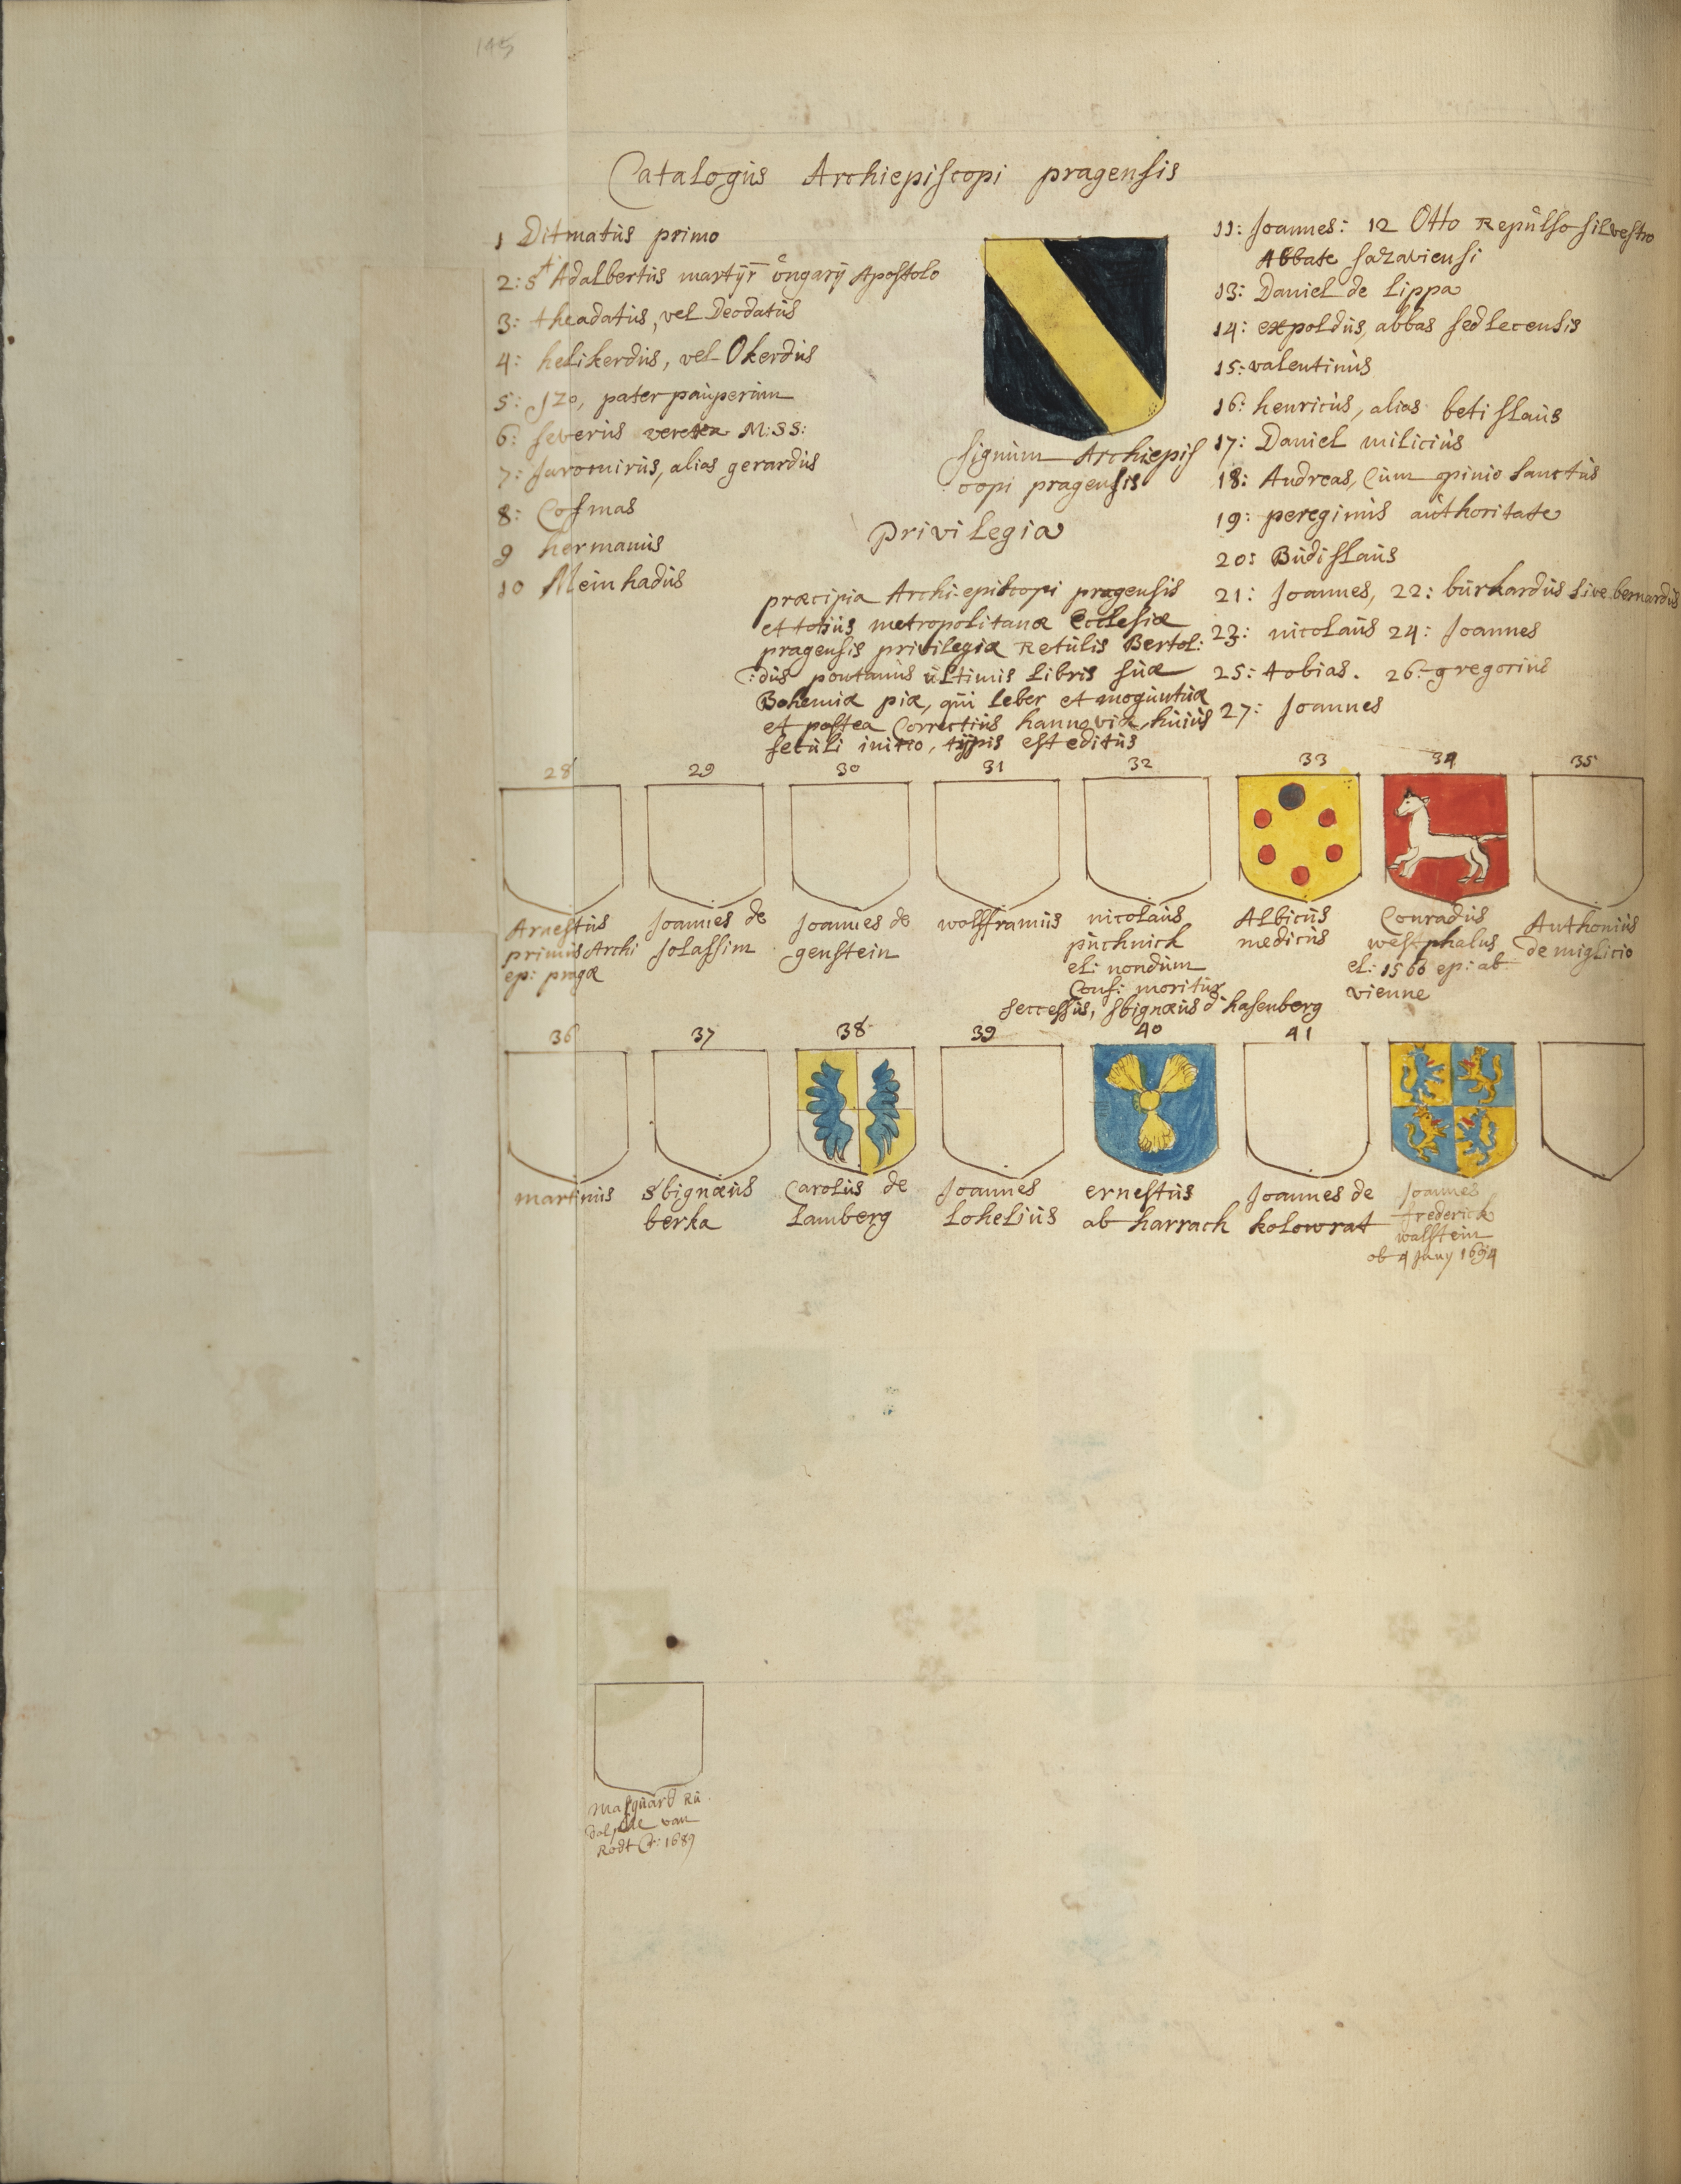 145
Catalogus Archiepiscopi pragensis
1 Ditmatus primo
2: St Adalbertus martyr ongarij Apostolo
3: theadatus, vel Deodatus
4: helikerdus, vel Okerdus
5: Jzo, pater pauperum
6: severus M:SS:
7: Jaromirus, alias gerardus
8: Cosmas
9 hermanus
10 Meinhadus
signum Archiepis
copi pragensis
Privilegia
præcipia Archi-episcopi pragensis
et totius metropolitanæ Ecclesiæ
pragensis privilegia Retulis Bertol:
:dus pontanus ultimis libris suæ
Bohemiæ piæ, qui leber et moguntiæ
et postea Correctius hannoviæ huius
seculi initio, typis est editus
11: Joannes: 12 Otto Repulso silvestro
Abbate sazaviensi
13: Daniel de Lippa
14: expoldus, abbas sedlecensis
15: valentinus
16: henricus, alias betislaus
17: Daniel milicius
18: Andreas, Cum opinio sanctus
19: pereginus authoritate
20: Budislaus
21: Joannes, 22: burkardus sive bernardus
23: nicolaus 24: Joannes
25: tobias. 26: gregorius
27: Joannes
28 29 30 31 32 33 34 35
Arnestus
primus Archi
ep: pragæ
Joannes de
Solassim
Joannes de
genstein
wolfframus
nicolaus
puchnick
el: nondum
Cons: moritur
seccessus, sbignæus d hasenberg
Albicus
medicus
Conradus
westphalus
el: 1566 ep: ab
vienne
Anthonius
de miglicio
36 37 38 39 40 41
martinus
Sbignæus
berka
Carolus de
Lamberg
Joannes
Lohelius
ernestus
ab harrach
Joannes de
kolowrat
Joannes
frederick
walstein
ob 4 Juny 1694
Marquard Ru
dolphe van
Rodt Er: 1689